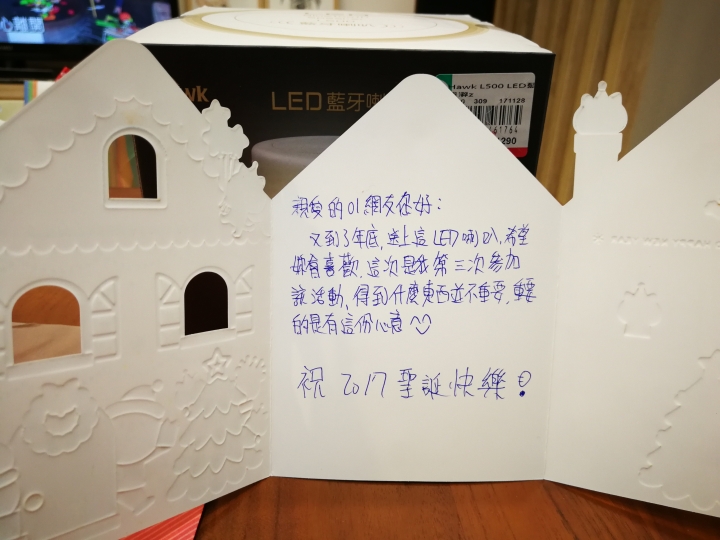 心難關
Hawk
LED 藍牙喇
Hawk L500 LED藍
309 171128
61764
290
親愛的01網友你好：
又到了年底, 送上這LED喇叭, 希望
妳會喜歡. 這次是我第三次參加
該活動, 得到什麼東西並不重要, 重要
的是有這份心意
祝 2017 聖誕快樂！